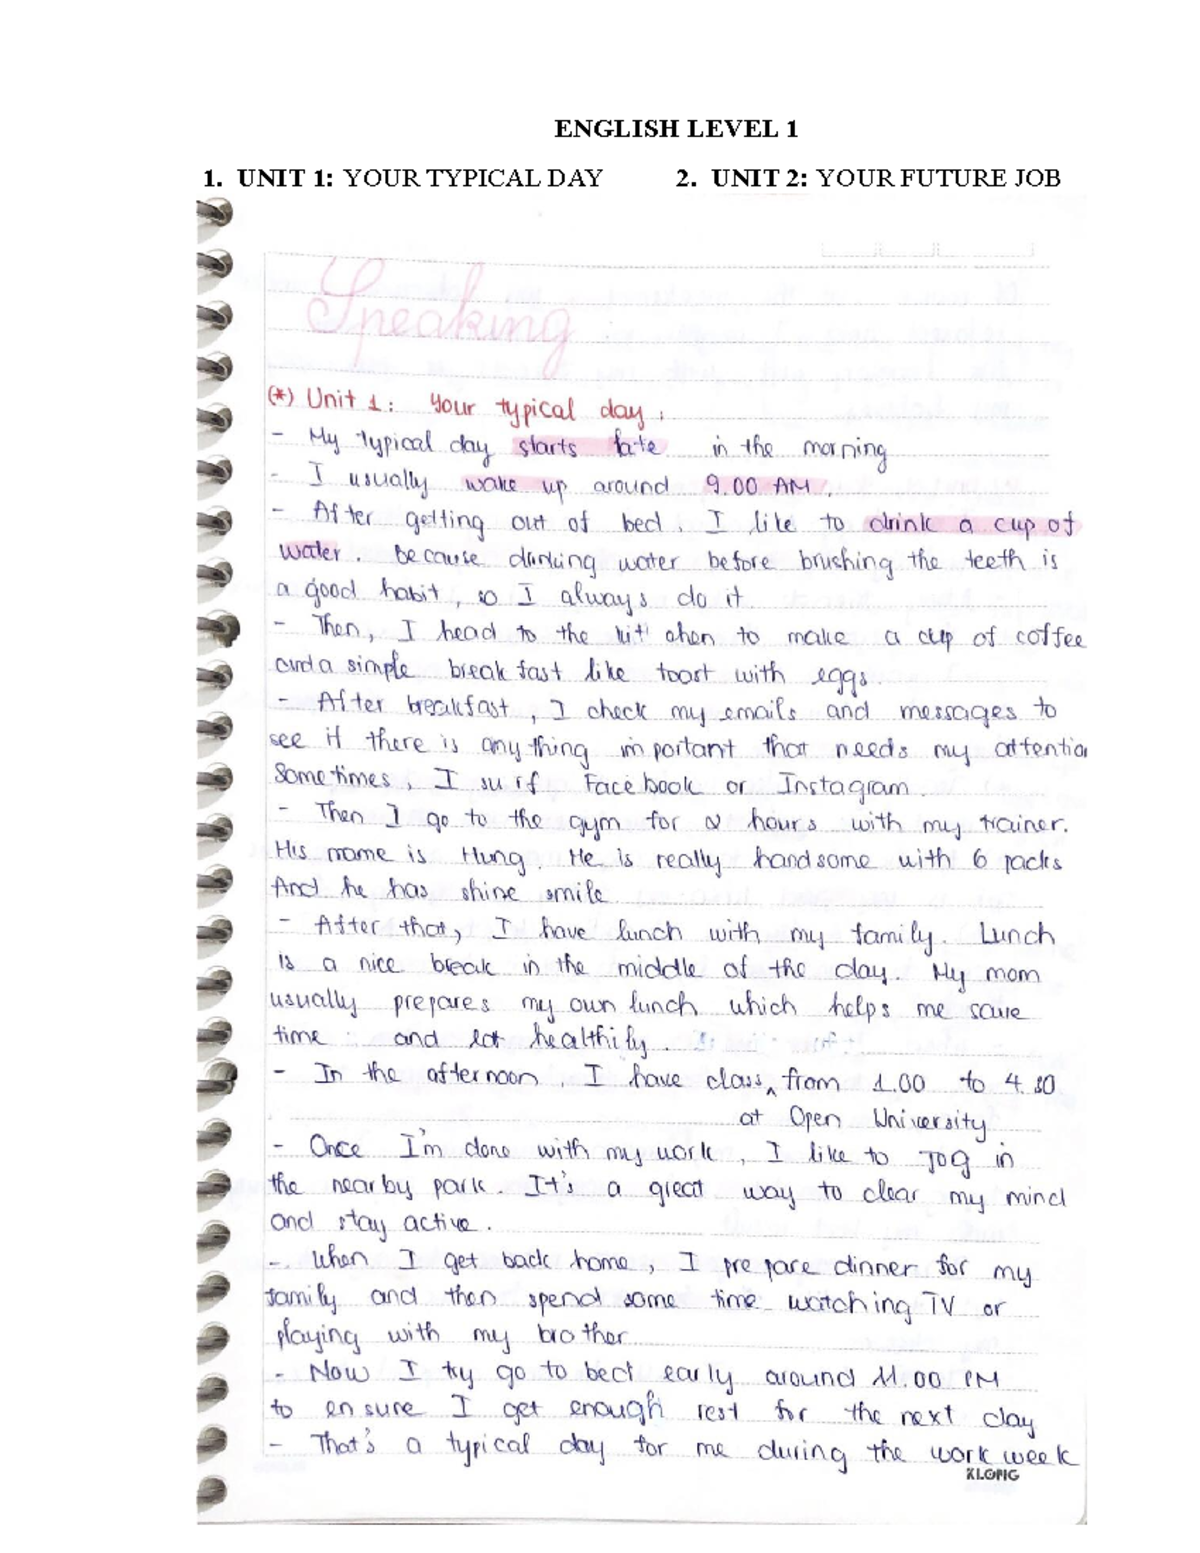 ENGLISH LEVEL 1
1. UNIT 1: YOUR TYPICAL DAY 2. UNIT 2: YOUR FUTURE JOB
Speaking
(*) Unit 1: Your typical day:
- My typical day starts late in the morning
- I usually wake up around 9.00 AM.
- After getting out of bed. I like to drink a cup of
water. because drinking water before brushing the teeth is
a good habit, so I always do it
- Then, I head to the kitchen to make a cup of coffee
and a simple breakfast like toast with eggs.
- After breakfast, I check my emails and messages to
see if there is anything important that needs my attention
Sometimes, I surf Facebook or Instagram.
- Then I go to the gym for 2 hours with my trainer.
His name is Hung. He is really handsome with 6 packs
And he has shine smile
- After that, I have lunch with my family. Lunch
is a nice break in the middle of the day. My mom
usually prepares my own lunch which helps me save
time and eat healthily.
- In the afternoon I have class from 1.00 to 4.30
at Open University
- Once I'm done with my work, I like to jog in
the nearby park. It's a great way to clear my mind
and stay active.
- When I get back home, I prepare dinner for my
family and then spend some time watching TV or
playing with my brother
- Now I try go to bed early around 11.00 PM
to ensure I get enough rest for the next day
- That's a typical day for me during the work week
KLONG